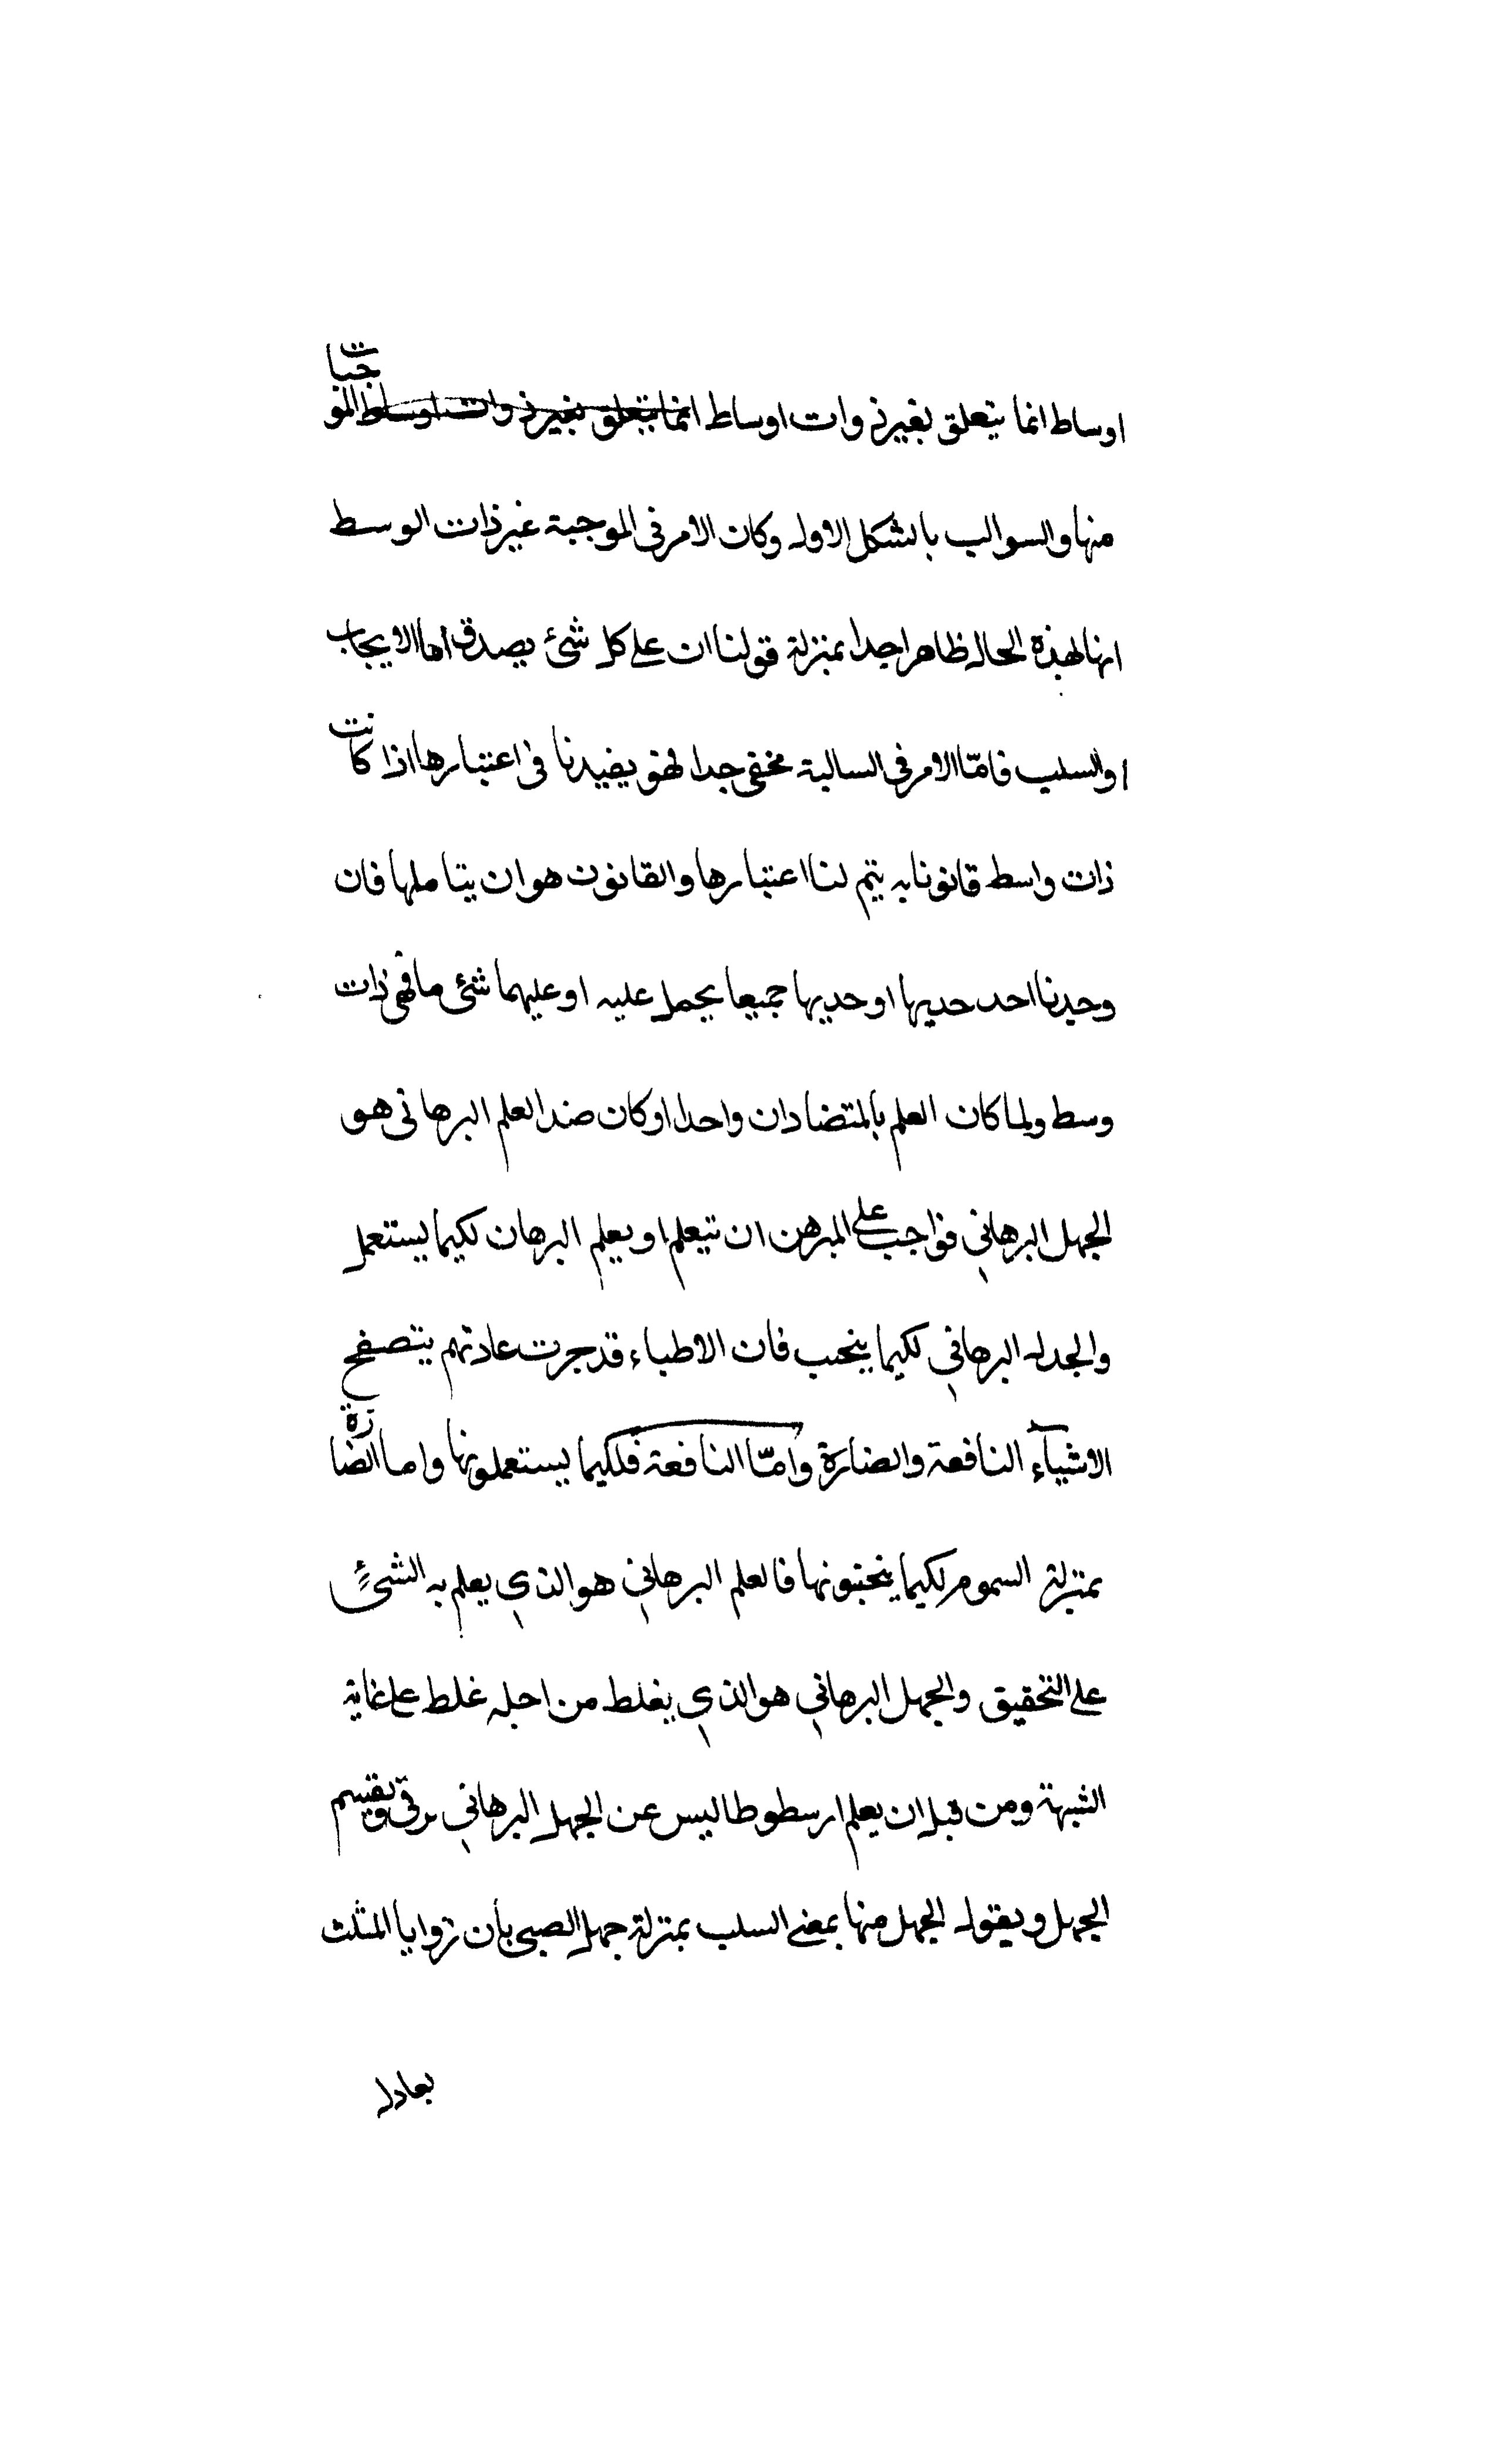 اوساط انما يتعلق بغير ذوات اوساط انما يتعلق بغير ذوات اوساط الموجبات
منها والسوالب بالشكل الاول وكان الامر فى الموجبة غير ذات الوسط
انها لهذه الحال ظاهرا جدا بمنزلة قولنا ان على كل شئ يصدق اما الايجاب
او السلب فامّا الامر فى السالبة مخفى جدا فهو يفيدنا فى اعتبارها اذا كانت
ذات واسط قانونا به يتم لنا اعتبارها والقانون هو ان يتاملها فان
وجدنا احد حديها او حديها جميعا يحمل عليه او عليهما شئ ما فهى ذات
وسط ولما كان العلم بالمتضادان واحدا وكان ضد العلم البرهانى هو
الجهل البرهاني فواجب على المبرهن ان يتعلم او يعلم البرهان لكيما يستعمل
والجدل البرهاني لكيما يتجنب فان الاطباء قد جرت عادتهم يتصفح
الاشيآء النافعة والضارة وامّا النافعة فلكيما يستعملونها واما الضارة
بمنزلة السموم لكيما يتجنبونها فالعلم البرهاني هو الذي يعلم به الشئ
على التحقيق والجهل البرهاني هو الذي يغلط من اجله غلط على غاية
الشبهة ومن قبل ان يعلم ارسطوطاليس عن الجهل البرهاني يرقى ويقسم
الجهل ويقول الجهل منها بمعنى السلب بمنزلة جهل الصبى بأن زوايا المثلث
بعادل